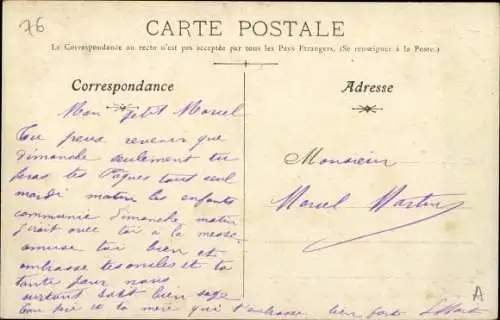 76
CARTE POSTALE
La Correspondance au recto n'est pas acceptée par tous les Pays Etrangers. (Se renseigner à la Poste.)
Correspondance
Adresse
Mon petit Marcel
Tu peux revenir que
dimanche seulement tu
feras tes Pâques tout seul
mardi matin les enfants
communie dimanche matin
avec toi à la messe
amuse toi bien et
embrasse tes oncles et ta
tante pour nous
surtout soit bien sage
ton père et ta mère qui t'embrasse bien fort
Monsieur
Marcel Martin
A